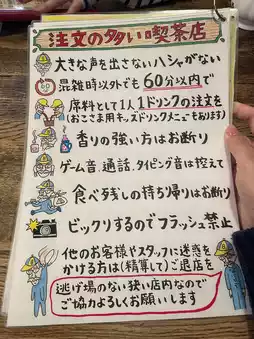 注文の多い喫茶店
大きな声を出さない ハシャがない
混雑時以外でも60分以内で
原料として1人1ドリンクの注文を
(おこさま用キッズドリンクメニューもあります)
香りの強い方はお断り
ゲーム音、通話、タイピング音は控えて
食べ残しの持ち帰りはお断り
ビックリするのでフラッシュ禁止
他のお客様やスタッフに迷惑を
かける方は(精算して)ご退店を
逃げ場のない狭い店内なので
ご協力よろしくお願いします